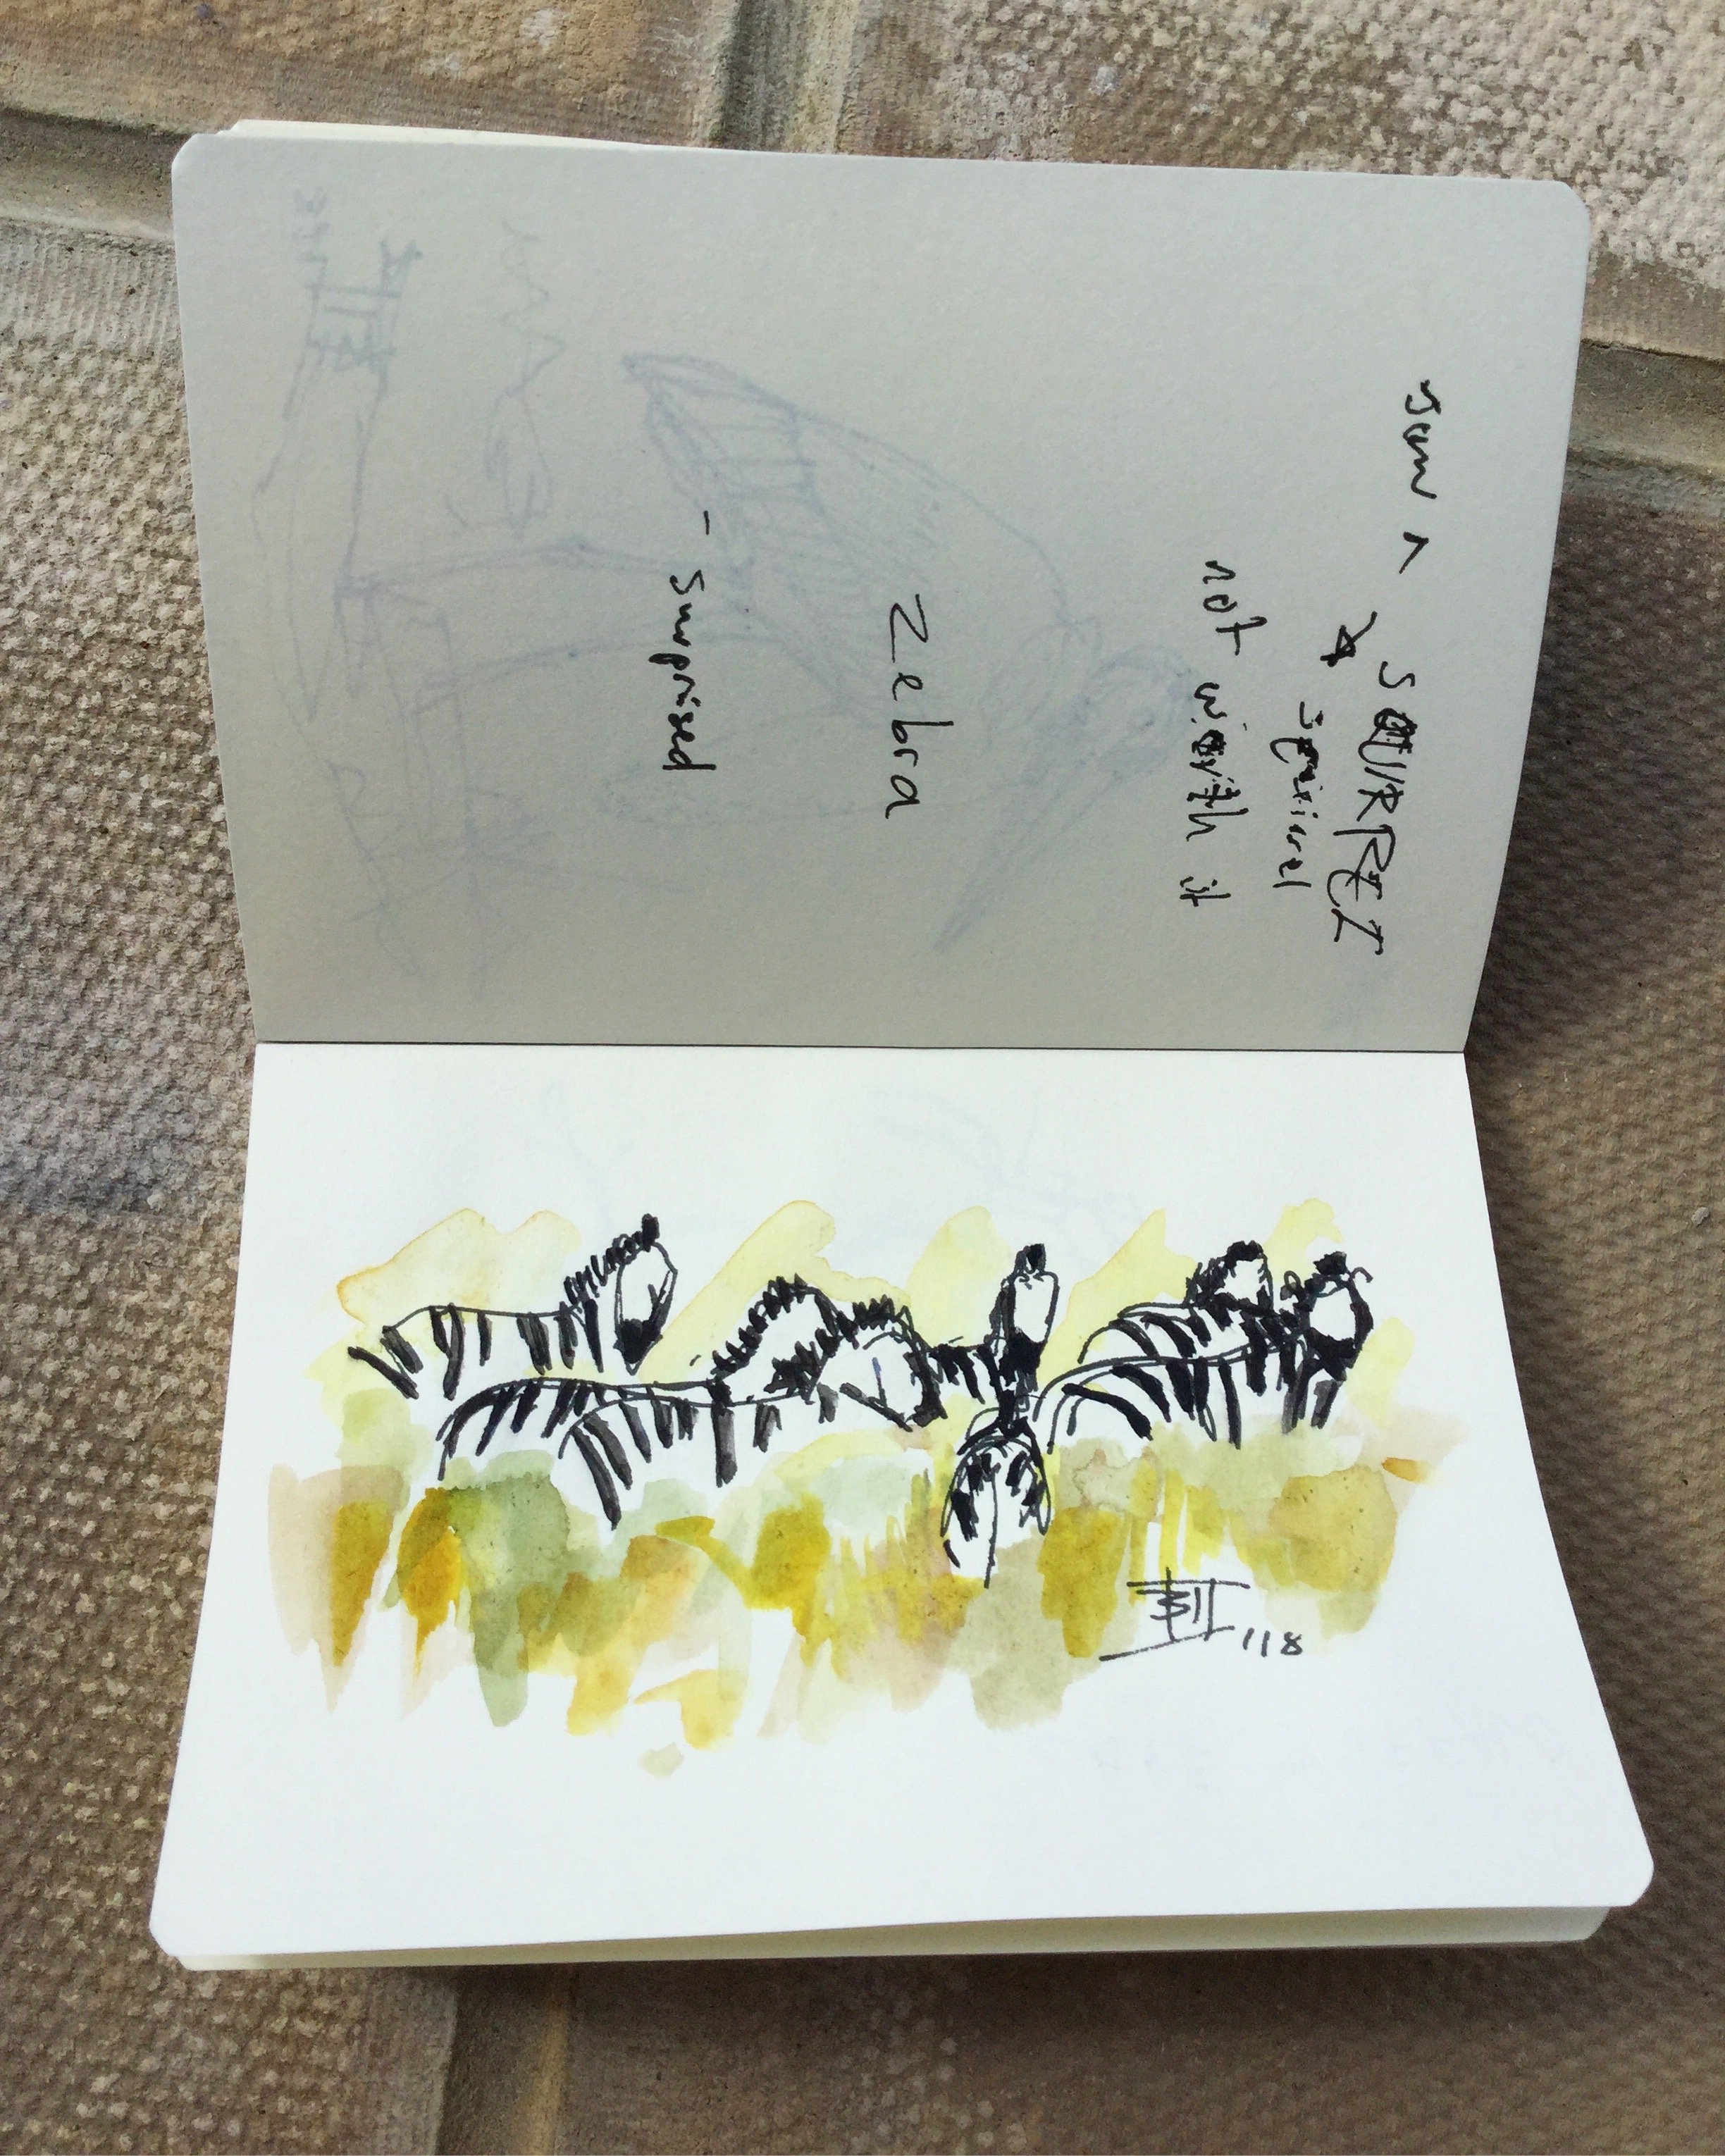 saw ^ SQUIRREL
squirrel
not worth it
Zebra
- surprised
'18